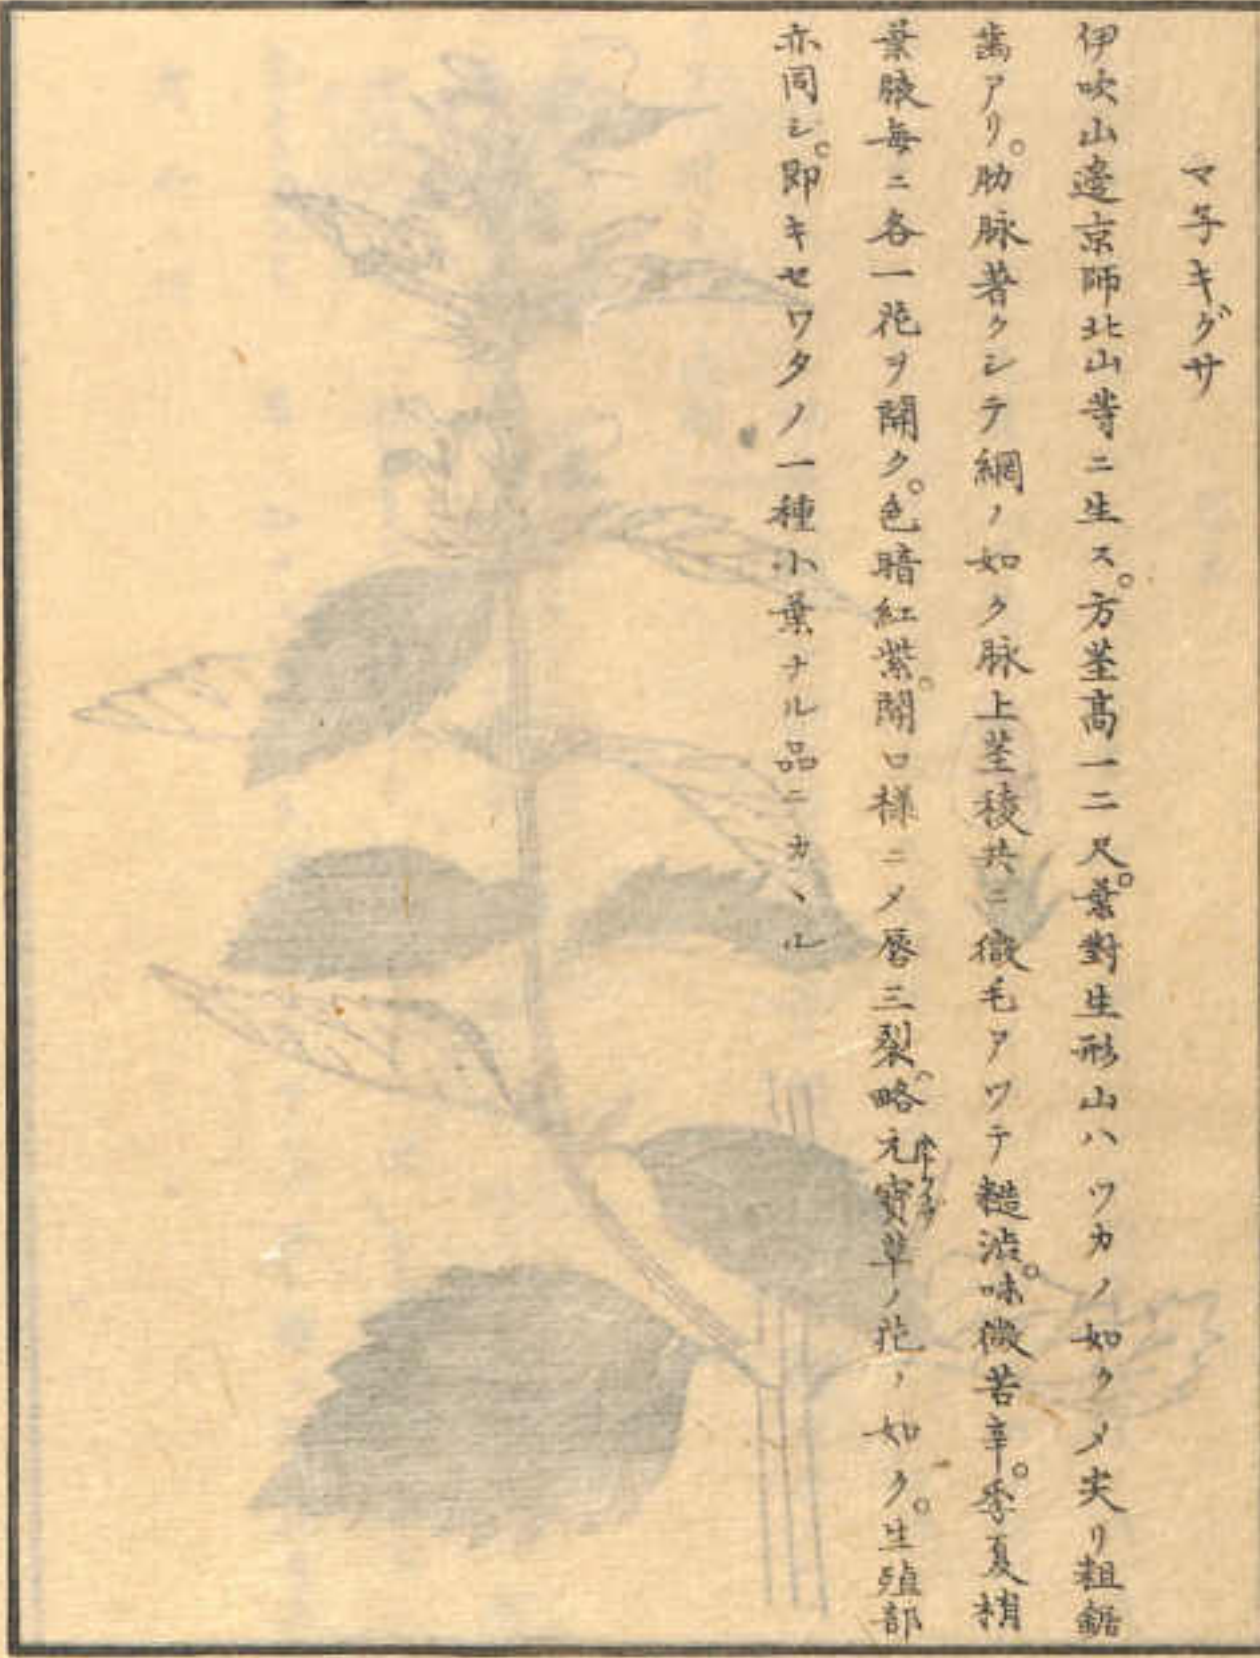 マネキグサ
伊吹山邊京師北山等ニ生ス。方茎高一二尺。葉對生形山ハツカノ如クメ尖リ粗鋸
歯アリ。肋脉著クシテ網ノ如ク脉上茎稜共ニ微毛アツテ糙渋。味微苦辛。季夏梢
葉腋毎ニ各一花ヲ開ク。色暗紅紫。開口様ニメ唇三裂。略元寳草ノ花ノ如ク。生殖部
亦同シ。即キセワタノ一種小葉ナル品ニカヽル